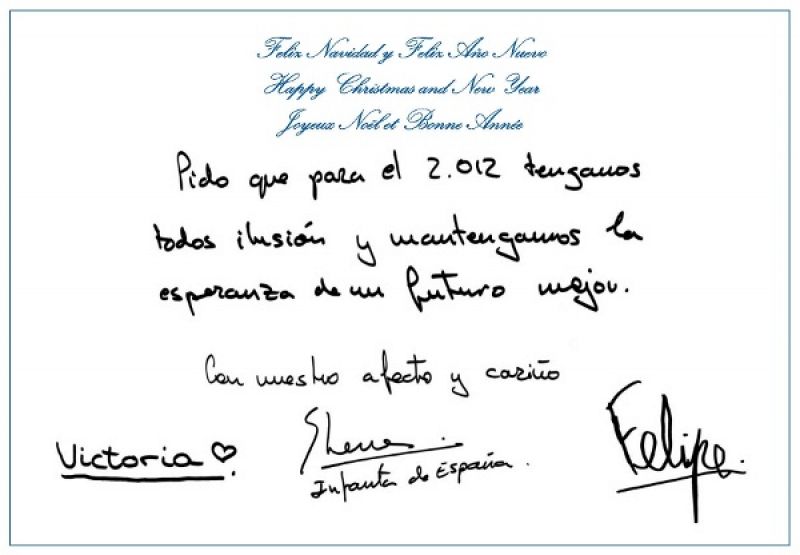 Feliz Navidad y Feliz Año Nuevo
Happy Christmas and New Year
Joyeux Noël et Bonne Année
Pido que para el 2.012 tengamos
todos ilusión y mantengamos la
esperanza de un futuro mejor.
Con nuestro afecto y cariño
Victoria ♡. Elena Felipe.
Infanta de España.